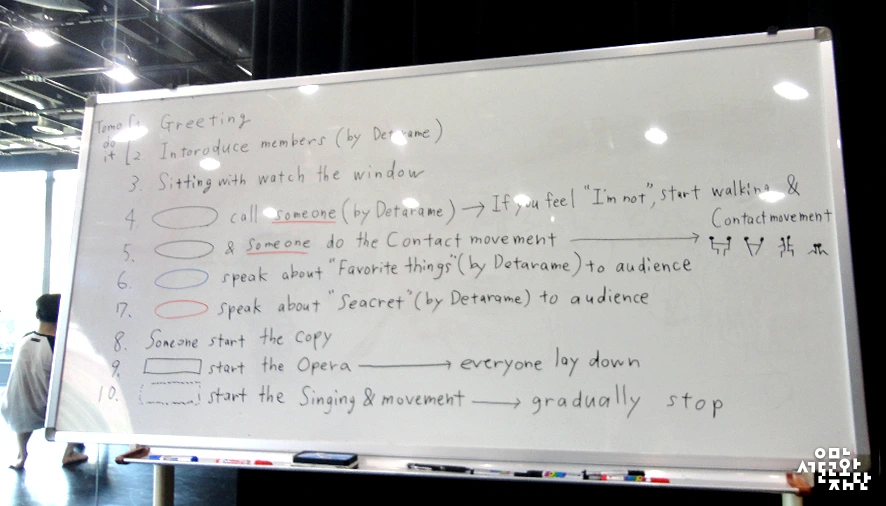 Tomo do it
1. Greeting
2. Intoroduce members (by Detarame)
3. Sitting with watch the window
4. call someone (by Detarame) → If you feel "I'm not", start walking & Contact movement
5. & someone do the Contact movement →
6. speak about "Favorite things" (by Detarame) to audience
7. speak about "Seacret" (by Detarame) to audience
8. Someone start the copy
9. start the Opera → everyone lay down
10. start the Singing & movement → gradually stop
서울문화재단